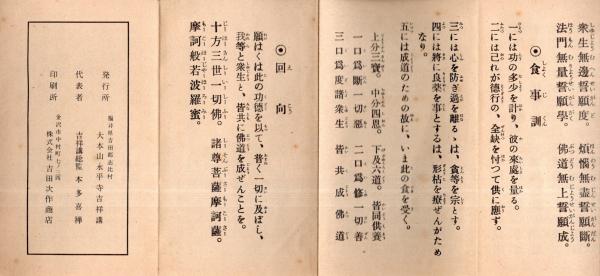 衆生無邊誓願度。煩惱無盡誓願斷。
法門無量誓願學。佛道無上誓願成。
◉食事訓
一には功の多少を計り、彼の來處を量る。
二には己れが德行の、全缺を忖つて供に應ず。
三には心を防ぎ過を離るゝは、貪等を宗とす。
四には將に良薬を事とするは、形枯を療ぜんがため
なり。
五には成道のための故に、いま此の食を受く。
上分三寶。中分四恩。下及六道。皆同供養
一口爲斷一切惡　二口爲修一切善
三口爲度諸衆生　皆共成佛道
◉回向
願はくは此の功德を以て、普く一切に及ぼし、
我等と衆生と、皆共に佛道を成ぜんことを。
十方三世一切佛。諸尊菩薩摩訶薩。
摩訶般若波羅蜜。
福井県吉田郡志比村
發行所　大本山永平寺吉祥講
代表者　吉祥講総監　本多喜禅
金沢市中村町七ノ二四
印刷所　株式會社吉田次作商店